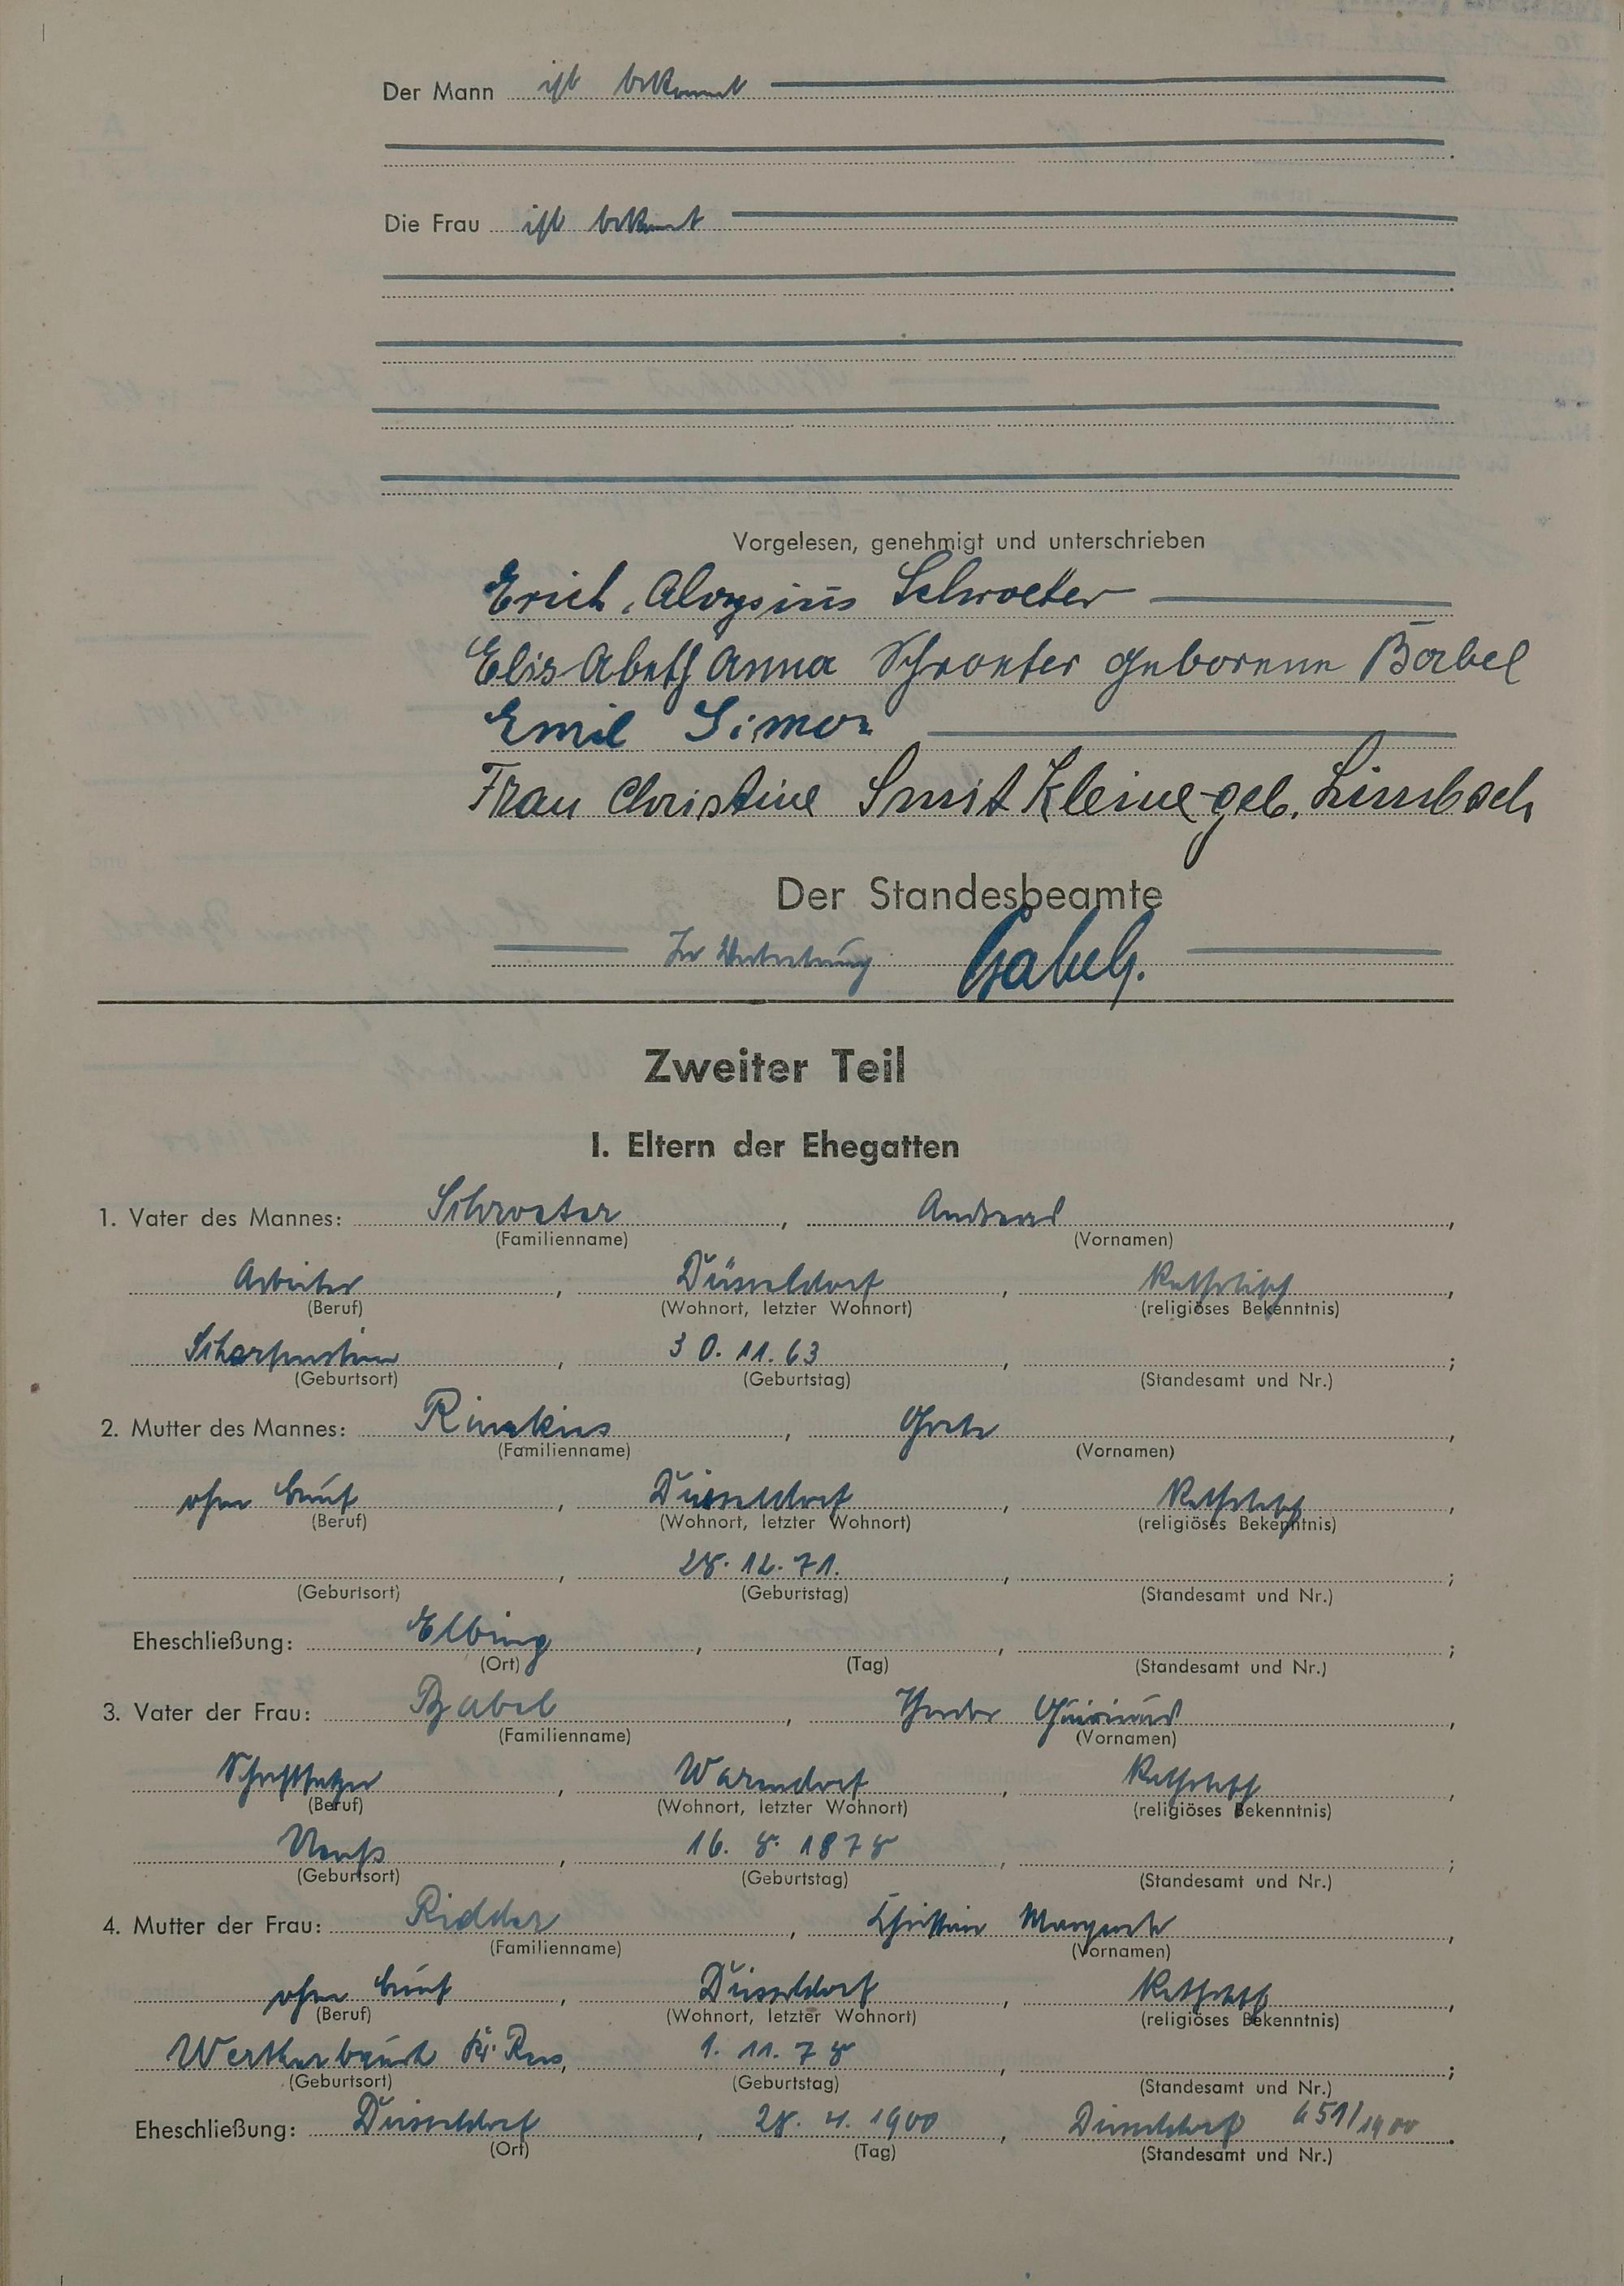 Der Mann ist bekannt
Die Frau ist bekannt
Vorgelesen, genehmigt und unterschrieben
Erich, Aloysius Schroeter
Elisabeth Anna Schroeter geborene Babel
Emil Simon
Frau Christine Smit Kleine geb. Limbach
Der Standesbeamte
In Vertretung
Zweiter Teil
I. Eltern der Ehegatten
1. Vater des Mannes: Schroeter, Andreas,
(Familienname) (Vornamen)
Arbeiter, Düsseldorf, katholisch,
(Beruf) (Wohnort, letzter Wohnort) (religiöses Bekenntnis)
Scharfenstein, 30. 11. 63, ;
(Geburtsort) (Geburtstag) (Standesamt und Nr.)
2. Mutter des Mannes: , Grete,
(Familienname) (Vornamen)
ohne Beruf, Düsseldorf, katholisch,
(Beruf) (Wohnort, letzter Wohnort) (religiöses Bekenntnis)
, 28. 12. 71. , ;
(Geburtsort) (Geburtstag) (Standesamt und Nr.)
Eheschließung: Elbing, , ;
(Ort) (Tag) (Standesamt und Nr.)
3. Vater der Frau: Babel, Quirinus,
(Familienname) (Vornamen)
Schriftsetzer, Warendorf, katholisch,
(Beruf) (Wohnort, letzter Wohnort) (religiöses Bekenntnis)
Neuß, 16. 8. 1878, ;
(Geburtsort) (Geburtstag) (Standesamt und Nr.)
4. Mutter der Frau: Ridder, Christine Margarete,
(Familienname) (Vornamen)
ohne Beruf, Düsseldorf, katholisch,
(Beruf) (Wohnort, letzter Wohnort) (religiöses Bekenntnis)
Wertherbruch Kr. Rees, 1. 11. 78, ;
(Geburtsort) (Geburtstag) (Standesamt und Nr.)
Eheschließung: Düsseldorf, 28. 4. 1900, Düsseldorf 651/1900.
(Ort) (Tag) (Standesamt und Nr.)